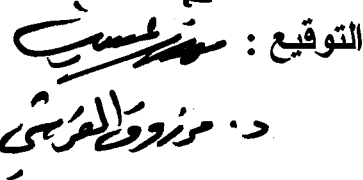 التوقيع :
د. مرزوق القرشي